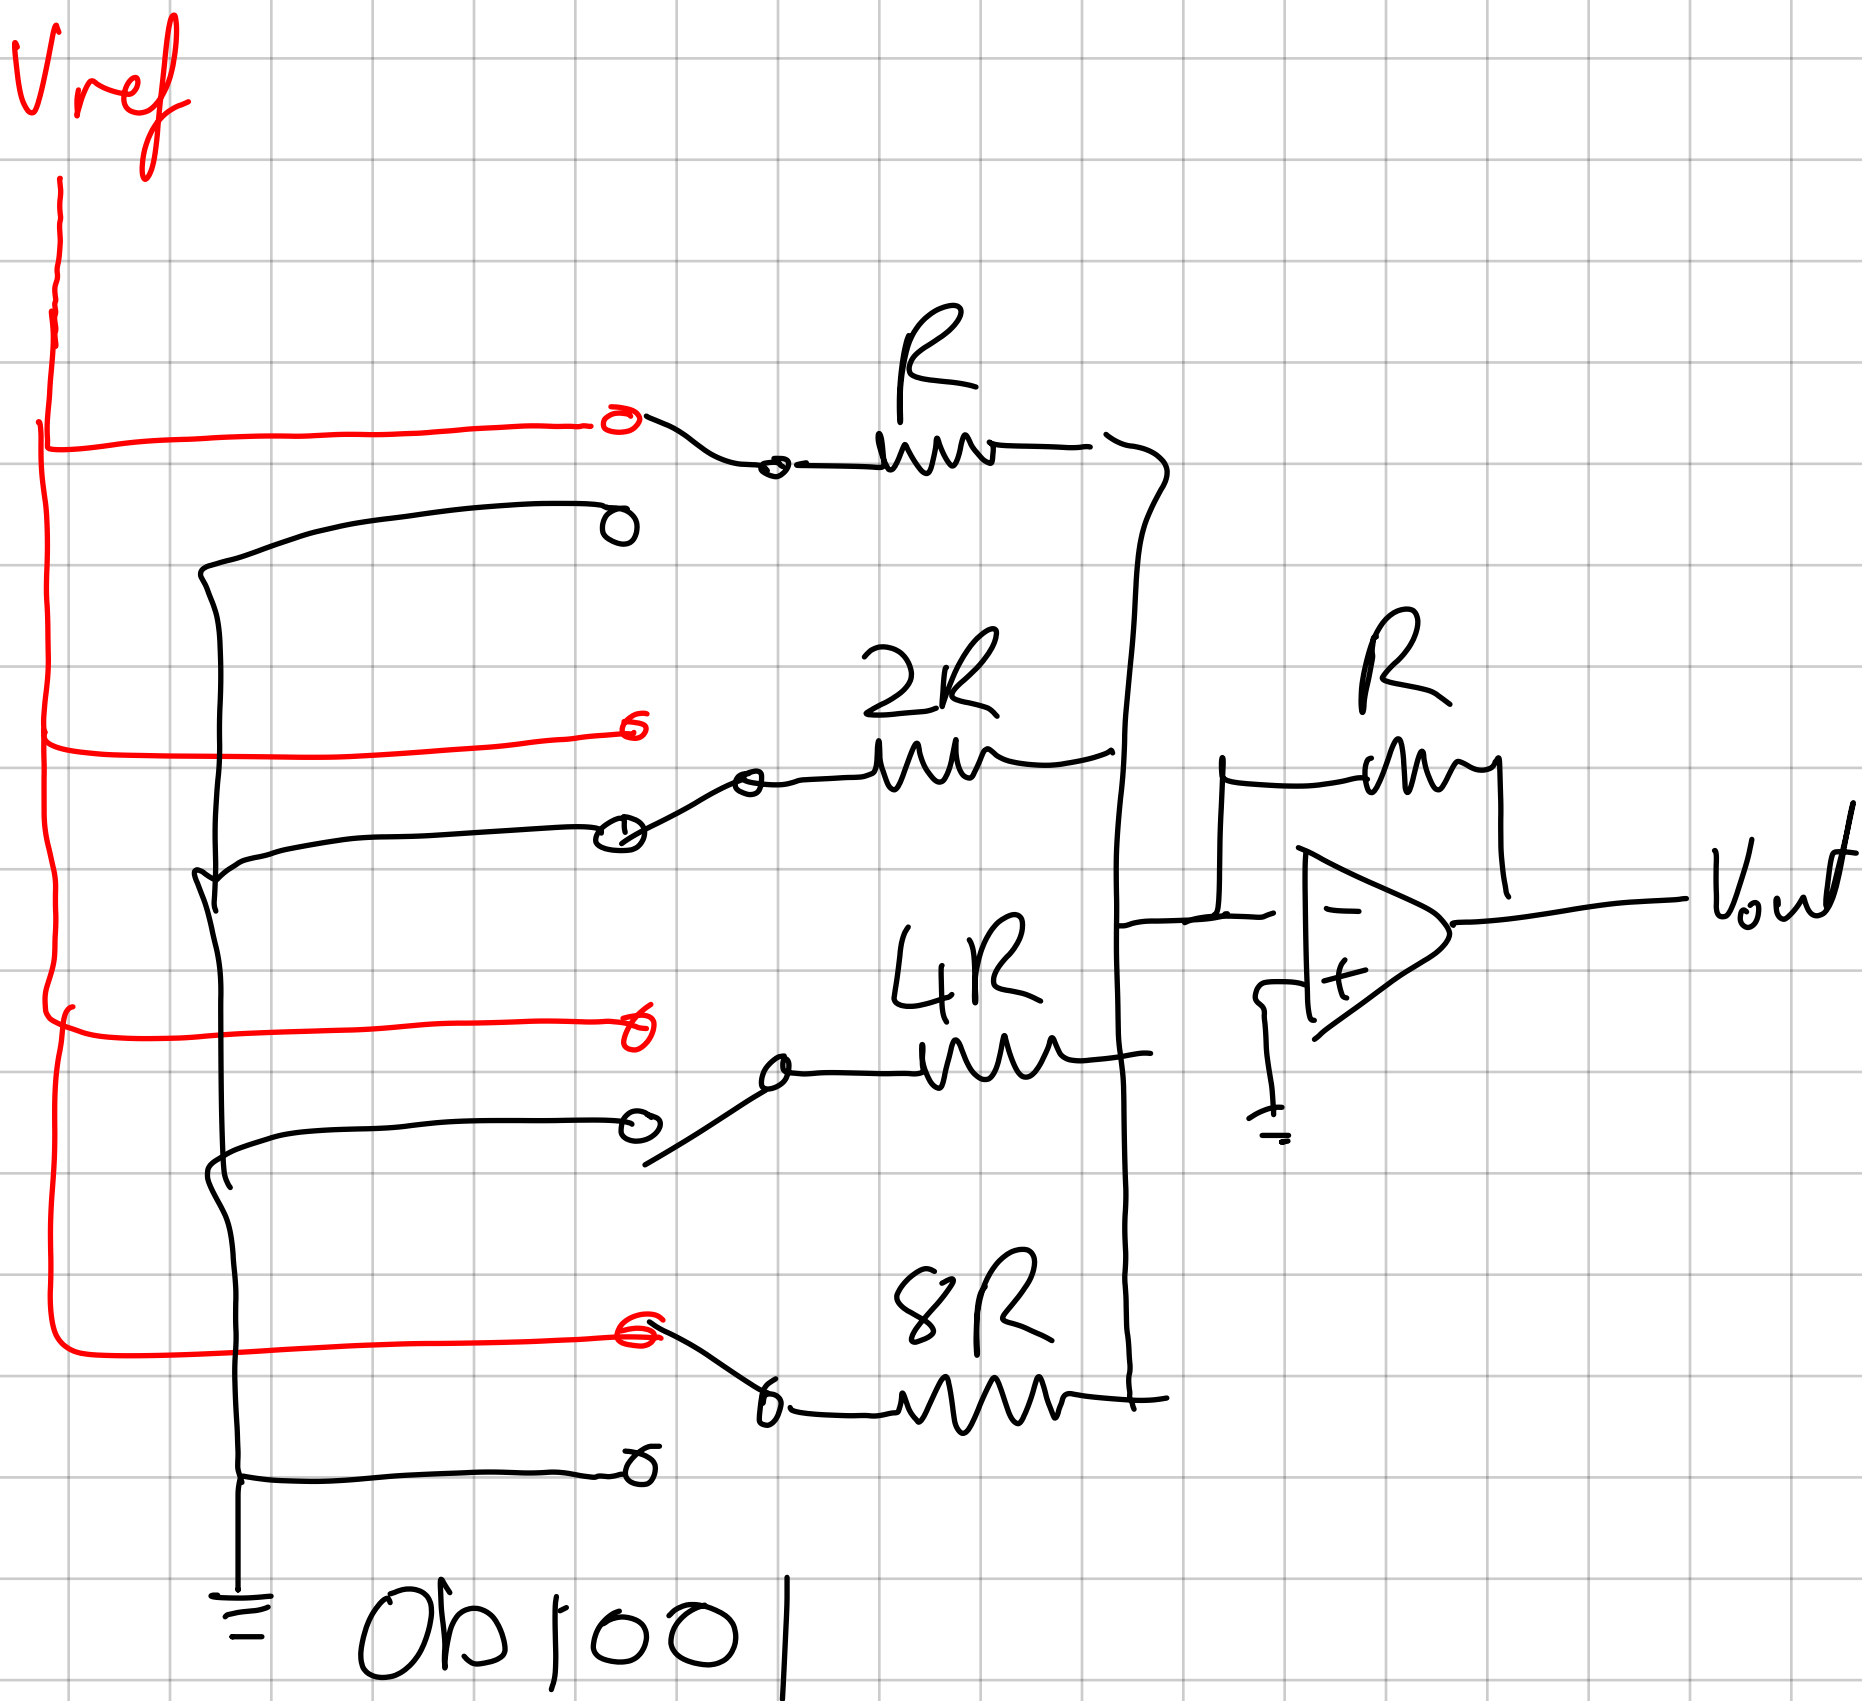 Vref
R
2R
R
4R
-
+
Vout
8R
0b1001